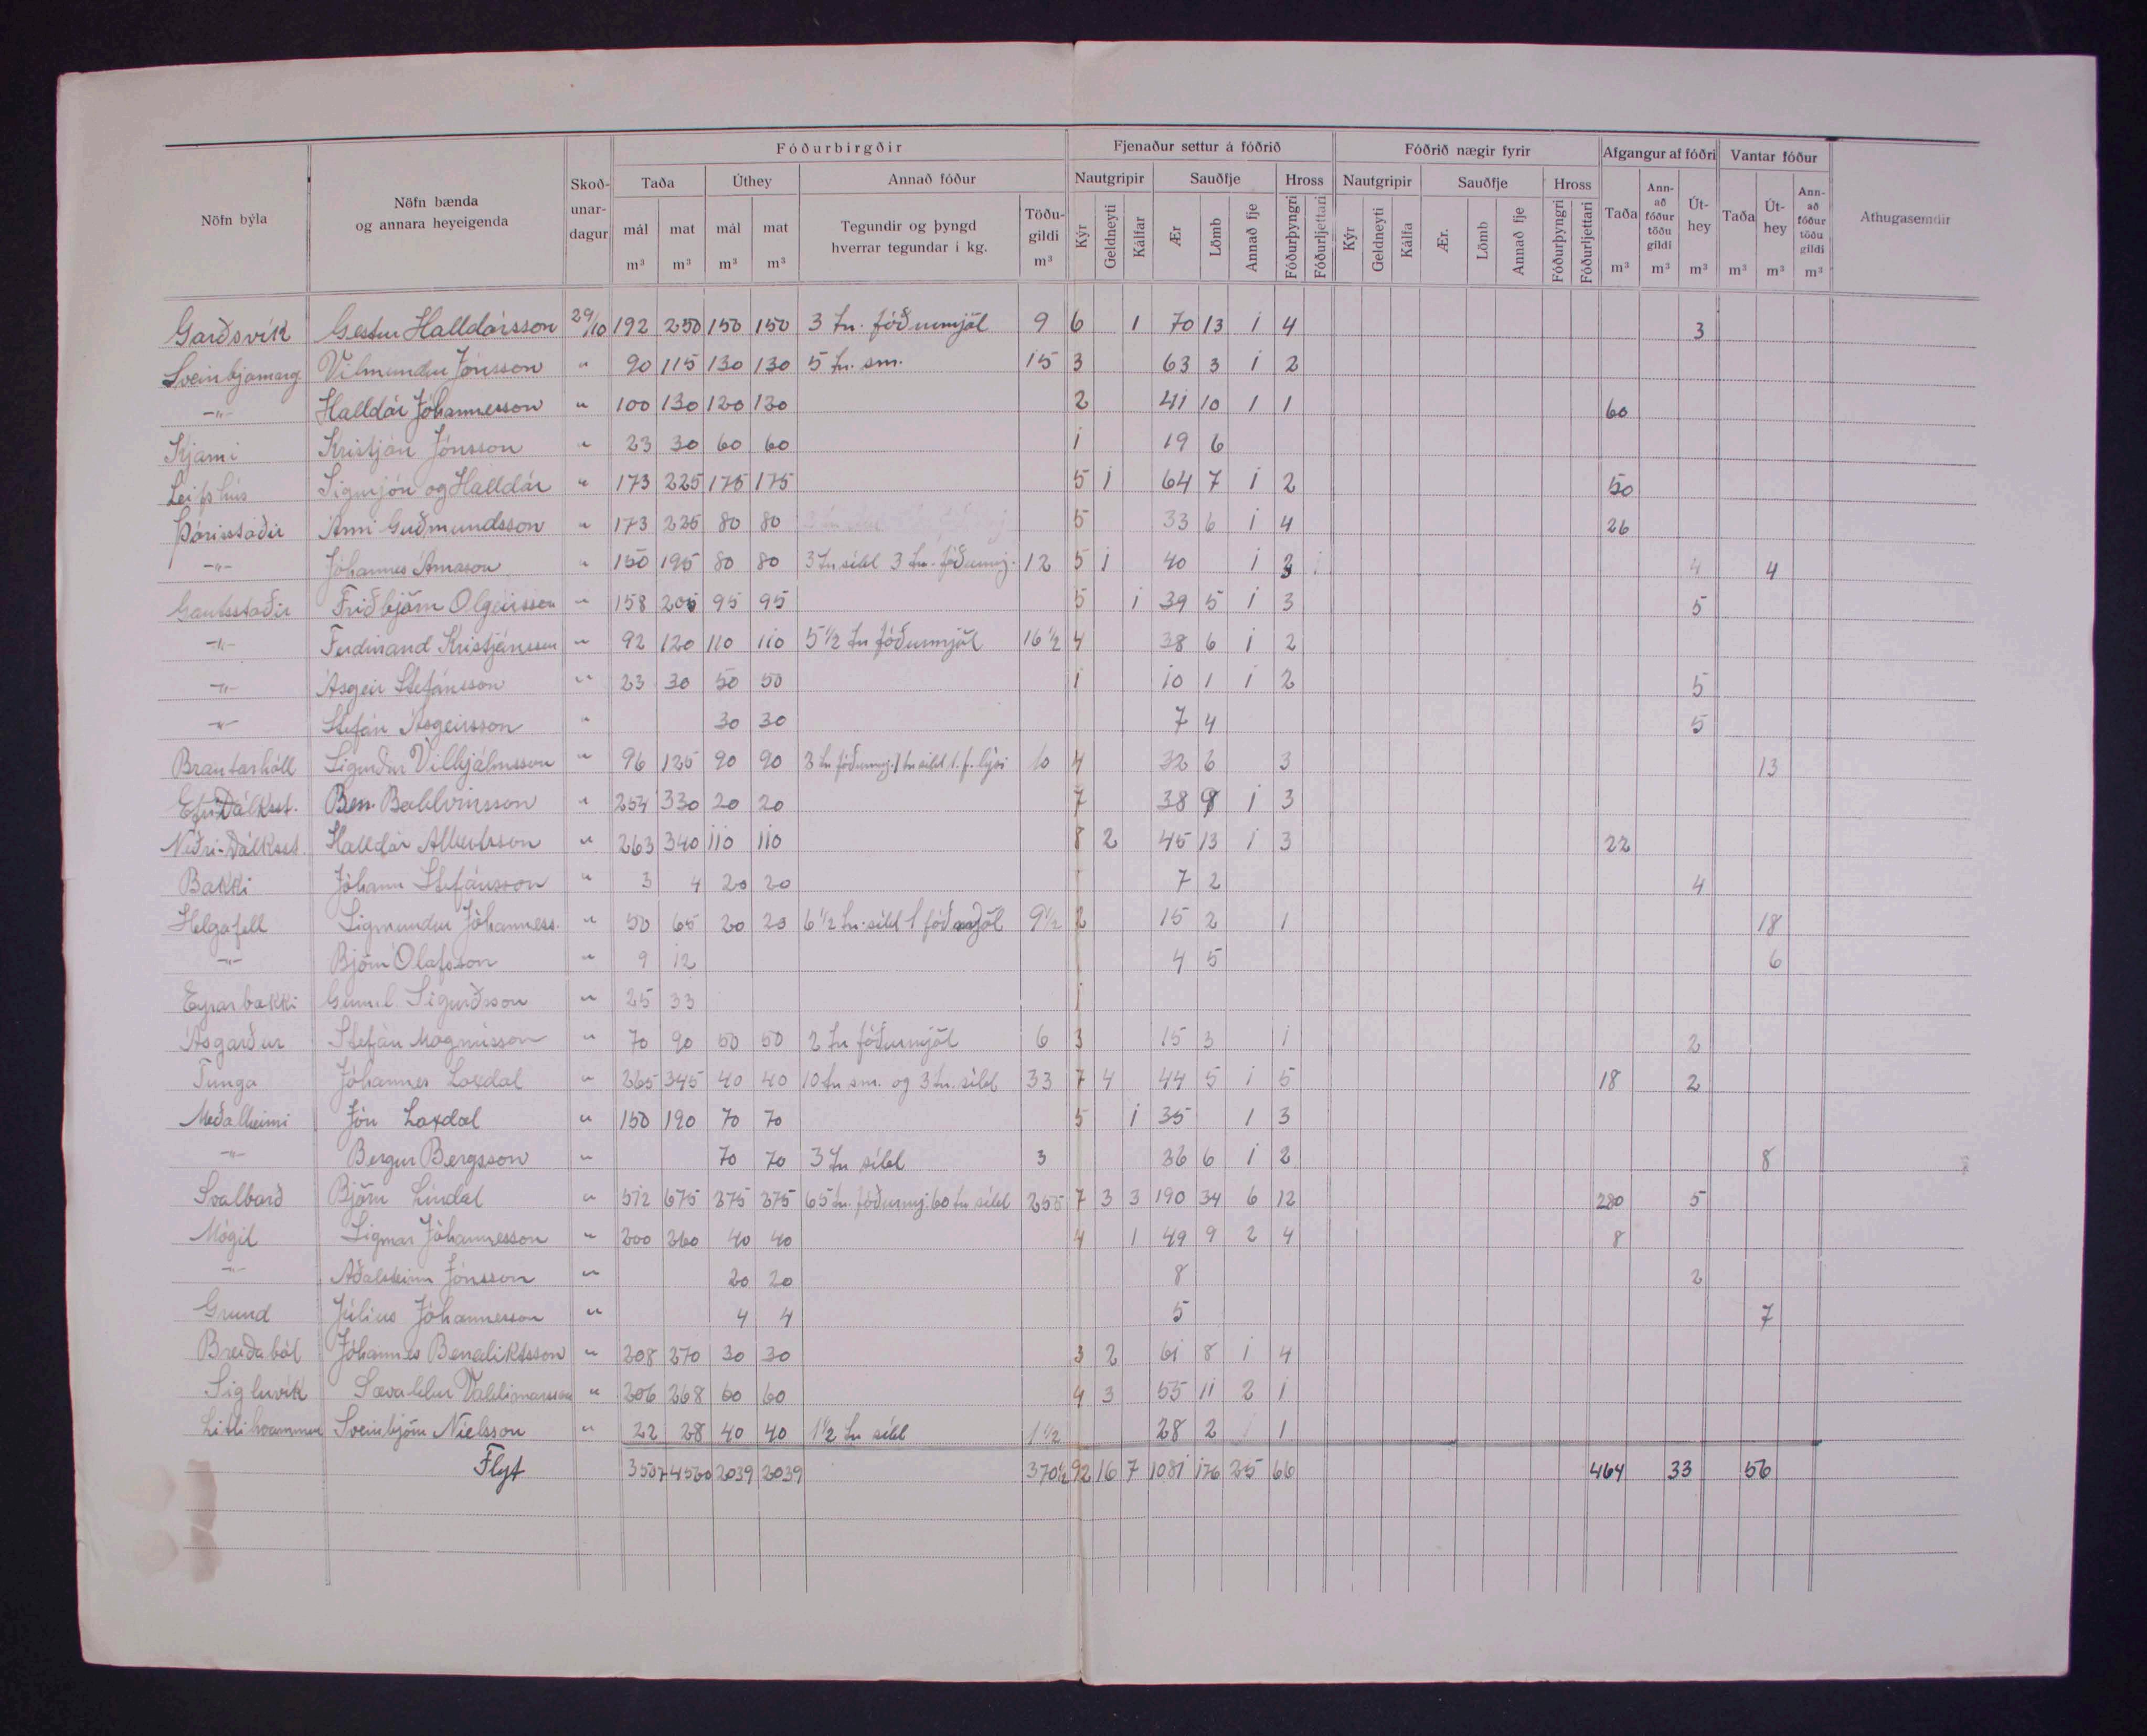 Fóðurbirgðir Fjenaður settur á fóðrið Fóðrið nægir fyrir Afgangur af fóðri Vantar fóður
Nöfn býla Nöfn bænda og annara heyeigenda Skoð-unar-dagur Taða Úthey Annað fóður Nautgripir Sauðfje Hross Nautgripir Sauðfje Hross Taða Ann-að fóður töðu gildi Út-hey Taða Út-hey Ann-að fóður töðu gildi Athugasemdir
mál mat mál mat Tegundir og þyngd hverrar tegundar í kg. Töðu-gildi Kýr Geldneyti Kálfar Ær Lömb Annað fje Fóðurþyngri Fóðurljettari Kýr Geldneyti Kálfa Ær. Lömb Annað fje Fóðurþyngri Fóðurljettari
m³ m³ m³ m³ m³ m³ m³ m³ m³ m³ m³
Garðsvík Gestur Halldórsson 29/10 192 250 150 150 3 tn. fóðurmjöl 9 6 1 70 13 1 4 3
Sveinbjarnarg Vilmundur Jónsson " 90 115 130 130 5 tn. sm. 15 3 63 3 1 2
-"- Halldór Jóhannesson " 100 130 120 120 2 41 10 1 1 60
Kjarni Kristján Jónsson " 23 30 60 60 1 19 6
Leifshús Sigurjón og Halldór " 173 225 175 175 5 1 64 7 1 2 50
Þórisstaðir Árni Guðmundsson " 173 225 80 80 5 33 6 1 4 26
-"- Jóhannes Árnason " 150 195 80 80 3 tn síld 3 tn. fóðurmj. 12 5 1 40 1 3 1 4 4
Gautsstaðir Friðbjörn Olgeirsson " 158 205 95 95 5 1 39 5 1 3 5
-"- Ferdinand Kristjánsson " 92 120 110 110 5 1/2 tn fóðurmjöl 16 1/2 4 38 6 1 2
-"- Ásgeir Stefánsson " 23 30 50 50 1 10 1 1 2 5
-"- Stefán Ásgeirsson " 30 30 7 4 5
Brautarhóll Sigurður Vilhjálmsson " 96 125 90 90 3 tn fóðurmj. 1 tn síld 1. f. lýsi 10 4 32 6 3 13
Efri Dálksst. Ben. Baldvinsson " 254 330 20 20 7 38 8 1 3
Neðri-Dálksst. Halldór Albertsson " 263 340 110 110 8 2 45 13 1 3 22
Bakki Jóhann Stefánsson " 3 4 20 20 7 2 4
Helgafell Sigmundur Jóhanness. " 50 65 20 20 6 1/2 tn. síld 1 fóðurmjöl 9 1/2 2 15 2 1 18
-"- Björn Ólafsson " 9 12 4 5 6
Eyrarbakki Gunnl. Sigurðsson " 25 33 1
Ásgarður Stefán Magnússon " 70 90 50 50 2 tn fóðurmjöl 6 3 15 3 1 2
Tunga Jóhannes Laxdal " 265 345 40 40 10 tn sm. og 3 tn. síld 33 7 4 44 5 1 5 18 2
Meðalheimi Jón Laxdal " 150 190 70 70 5 1 35 1 3
-"- Bergur Bergsson " 70 70 3 tn síld 3 36 6 1 2 8
Svalbarð Björn Líndal " 512 675 375 375 65 tn. fóðurmj. 60 tn síld 255 7 3 3 190 34 6 12 280 5
Mógil Sigmar Jóhannesson " 200 260 40 40 4 1 49 9 2 4 8
-"- Aðalsteinn Jónsson " 20 20 8 2
Grund Júlíus Jóhannesson " 4 4 5 7
Breiðaból Jóhannes Benediktsson " 208 270 30 30 3 2 61 8 1 4
Sigluvík Sævaldur Valdimarsson " 206 268 60 60 4 3 55 11 2 1
Litlihvammur Sveinbjörn Níelsson " 22 28 40 40 1 1/2 tn síld 1 1/2 28 2 1 1
Flyt 3507 4560 2039 2039 370 1/2 92 16 7 1081 176 25 66 464 33 56